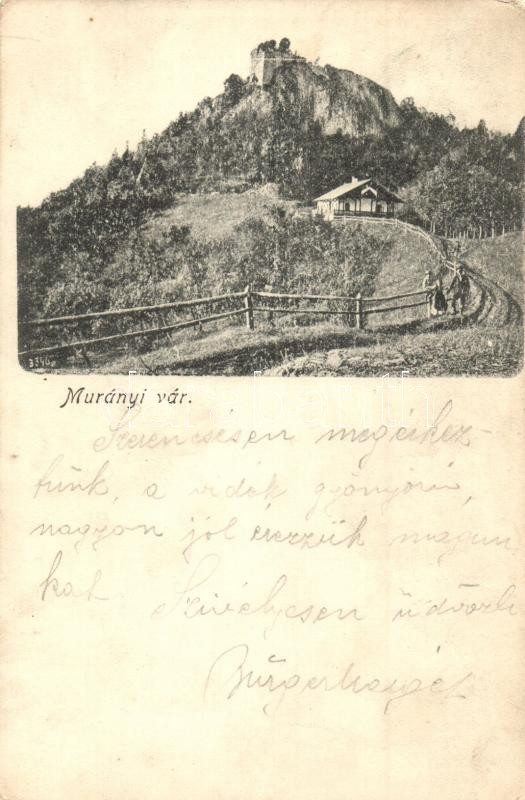 3540
Murányi vár.
Szerencsésen megérkez-
tünk, a vidék gyönyörű,
nagyon jól érezzük magun
kat. Szívélyesen üdvözli